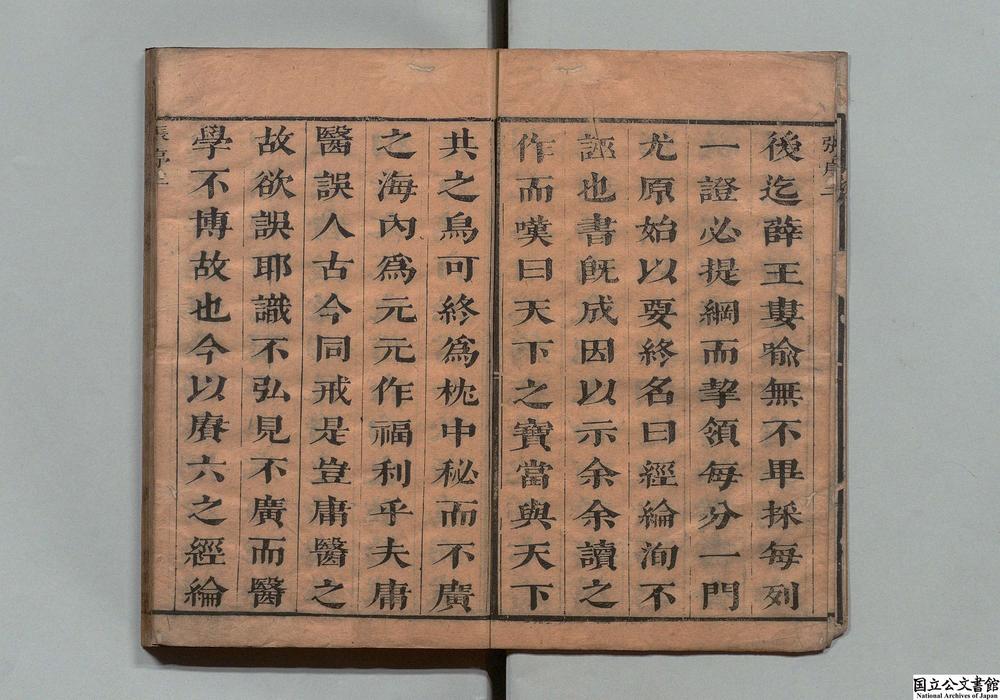 張序二
後迄薛王婁喻無不畢採每列
一證必提綱而挈領每分一門
尤原始以要終名曰經綸洵不
誣也書旣成因以示余余讀之
作而嘆曰天下之寶當與天下
共之烏可終爲枕中秘而不廣
之海內爲元元作福利乎夫庸
醫誤人古今同戒是豈庸醫之
故欲誤耶識不弘見不廣而醫
學不博故也今以賡六之經綸
張序
国立公文書館
National Archives of Japan